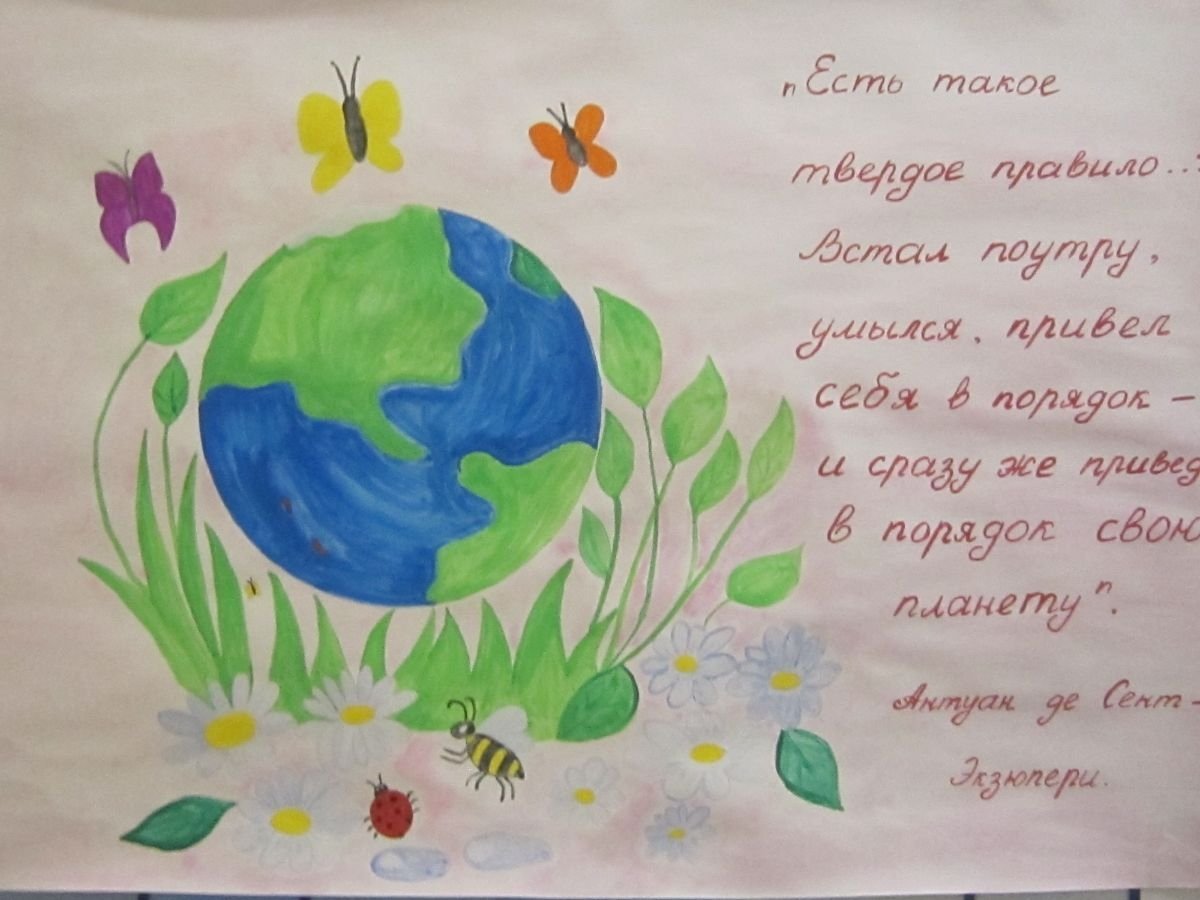 "Есть такое
твердое правило...
Встал поутру,
умылся, привел
себя в порядок -
и сразу же привед
в порядок свою
планету".
Антуан де Сент-
Экзюпери.